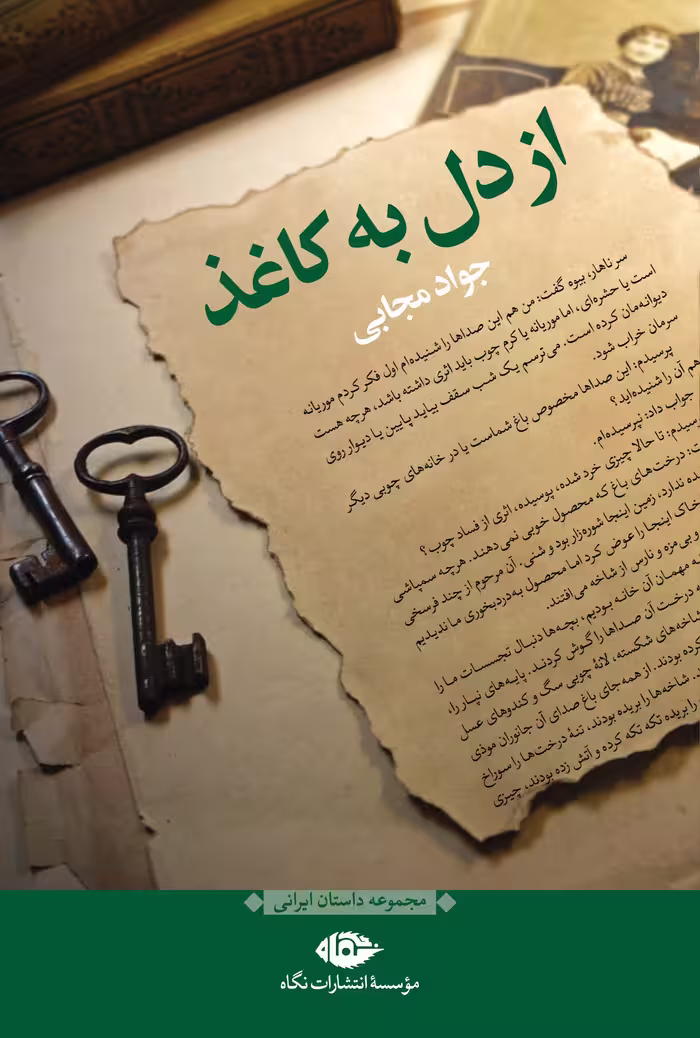 از دل به کاغذ
جواد مجابی
سر ناهار، بیوه گفت: من هم این صداها را شنیده‌ام اول فکر کردم موریانه
است یا حشره‌ای، اما موریانه یا کرم چوب باید اثری داشته باشد، هرچه هست
دیوانه‌مان کرده است. می‌ترسم یک شب سقف بیاید پایین یا دیوار روی
سرمان خراب شود.
پرسیدم: این صداها مخصوص باغ شماست یا در خانه‌های چوبی دیگر
هم آن را شنیده‌اید؟
جواب داد: نپرسیده‌ام.
پرسیدم: تا حالا چیزی خرد شده، پوسیده، اثری از فساد چوب؟
درخت‌های باغ که محصول خوبی نمی‌دهند. هرچه سمپاشی
ندارد، زمین اینجا شوره‌زار بود و شنی. آن مرحوم از چند فرسخی
خاک اینجا را عوض کرد اما محصول به‌دردبخوری ما ندیدیم
و بی‌مزه و نارس از شاخه می‌افتند.
مهمان آن خانه بودیم، بچه‌ها دنبال تجسسات ما را
درخت آن صداها را گوش کردند. پایه‌های نپار را،
شاخه‌های شکسته، لانهٔ چوبی سگ و کندوهای عسل
کرده بودند. از همه‌جای باغ صدای آن جانوران موذی
شاخه‌ها را بریده بودند، تنهٔ درخت‌ها را سوراخ
را بریده تکه تکه کرده و آتش زده بودند، چیزی
مجموعه داستان ایرانی
مؤسسهٔ انتشارات نگاه